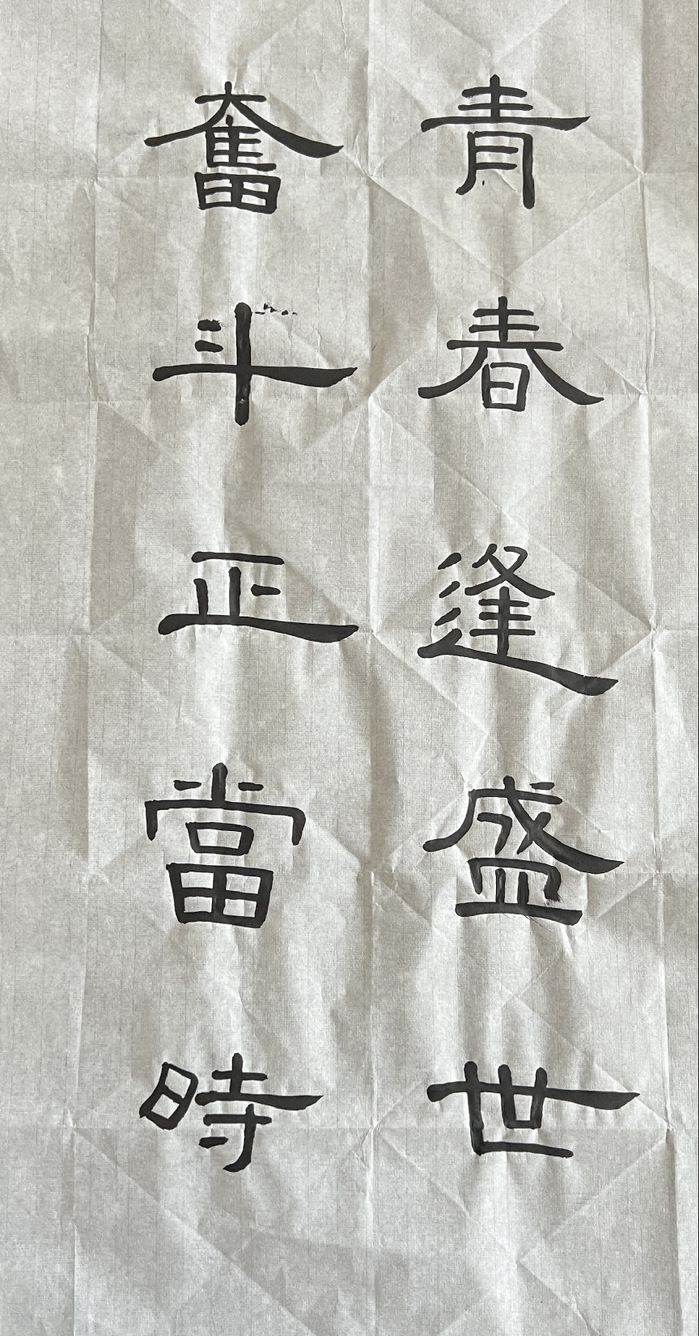 青春逢盛世
奮斗正當時